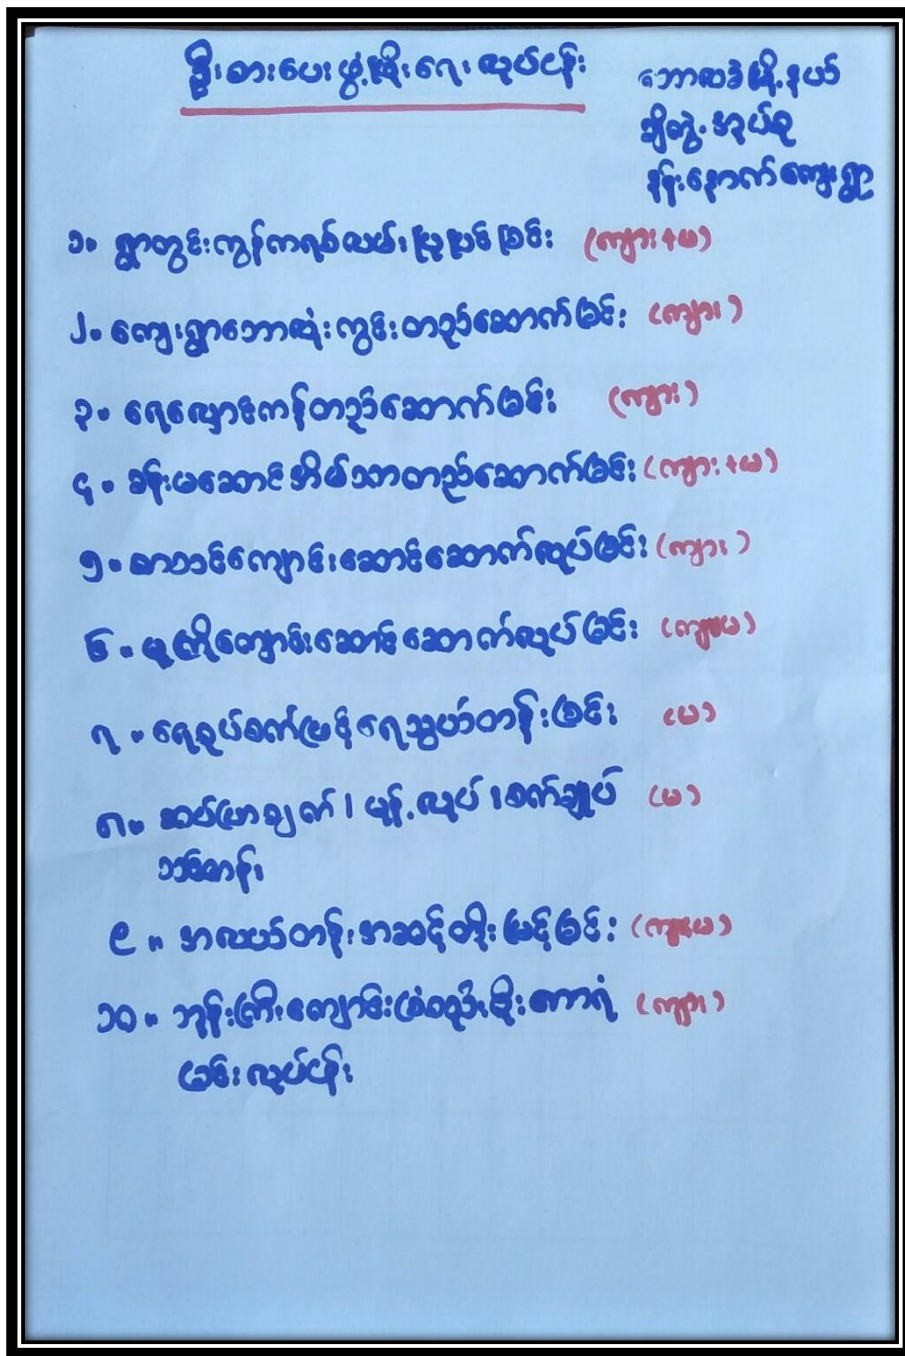 ဦးစားပေးဖွံ့ဖြိုးရေးလုပ်ငန်း
ဘောလခဲမြို့နယ်
ချီတွဲ့အုပ်စု
နန်းနောက်ကျေးရွာ
၁။ ရွာတွင်းကွန်ကရစ်လမ်းပြုပြင်ခြင်း (ကျား+မ)
၂။ ကျေးရွာဘောလုံးကွင်းတည်ဆောက်ခြင်း (ကျား)
၃။ ရေလှောင်ကန်တည်ဆောက်ခြင်း (ကျား)
၄။ ခန်းမဆောင်အိမ်သာတည်ဆောက်ခြင်း (ကျား+မ)
၅။ စာသင်ကျောင်းဆောင်ဆောက်လုပ်ခြင်း (ကျား)
၆။ မူကြိုကျောင်းဆောင်ဆောက်လုပ်ခြင်း (ကျား+မ)
၇။ ရေစုပ်စက်ဖြင့်ရေသွယ်တန်းခြင်း (မ)
၈။ ဆပ်ပြာချက်၊ မုန့်လုပ်၊ စက်ချုပ် (မ)
သင်တန်း
၉။ အလယ်တန်းအဆင့်တိုးမြှင့်ခြင်း (ကျား+မ)
၁၀။ ဘုန်းကြီးကျောင်းခြံစည်းရိုးကာရံ (ကျား)
ခြင်းလုပ်ငန်း